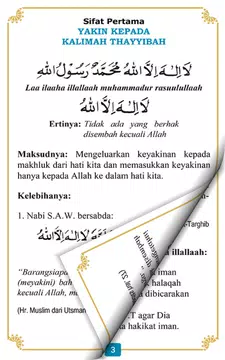 Sifat Pertama
YAKIN KEPADA
KALIMAH THAYYIBAH
لَا إِلٰهَ إِلَّا اللهُ مُحَمَّدٌ رَسُوْلُ اللهِ
Laa ilaaha illallaah muhammadur rasuulullaah
لَا إِلٰهَ إِلَّا اللهُ
Ertinya: Tidak ada yang berhak
disembah kecuali Allah
Maksudnya: Mengeluarkan keyakinan kepada
makhluk dari hati kita dan memasukkan keyakinan
hanya kepada Allah ke dalam hati kita.
Kelebihannya:
1. Nabi S.A.W. bersabda:
-Targhib
لَا إِلٰهَ إِلَّا اللهُ
illallaah:
"Barangsiapa
iman
(meyakini) bah
halaqah
kecuali Allah, m
dibicarakan
(Hr. Muslim dari Utsman
T agar Dia
hakikat iman.
3